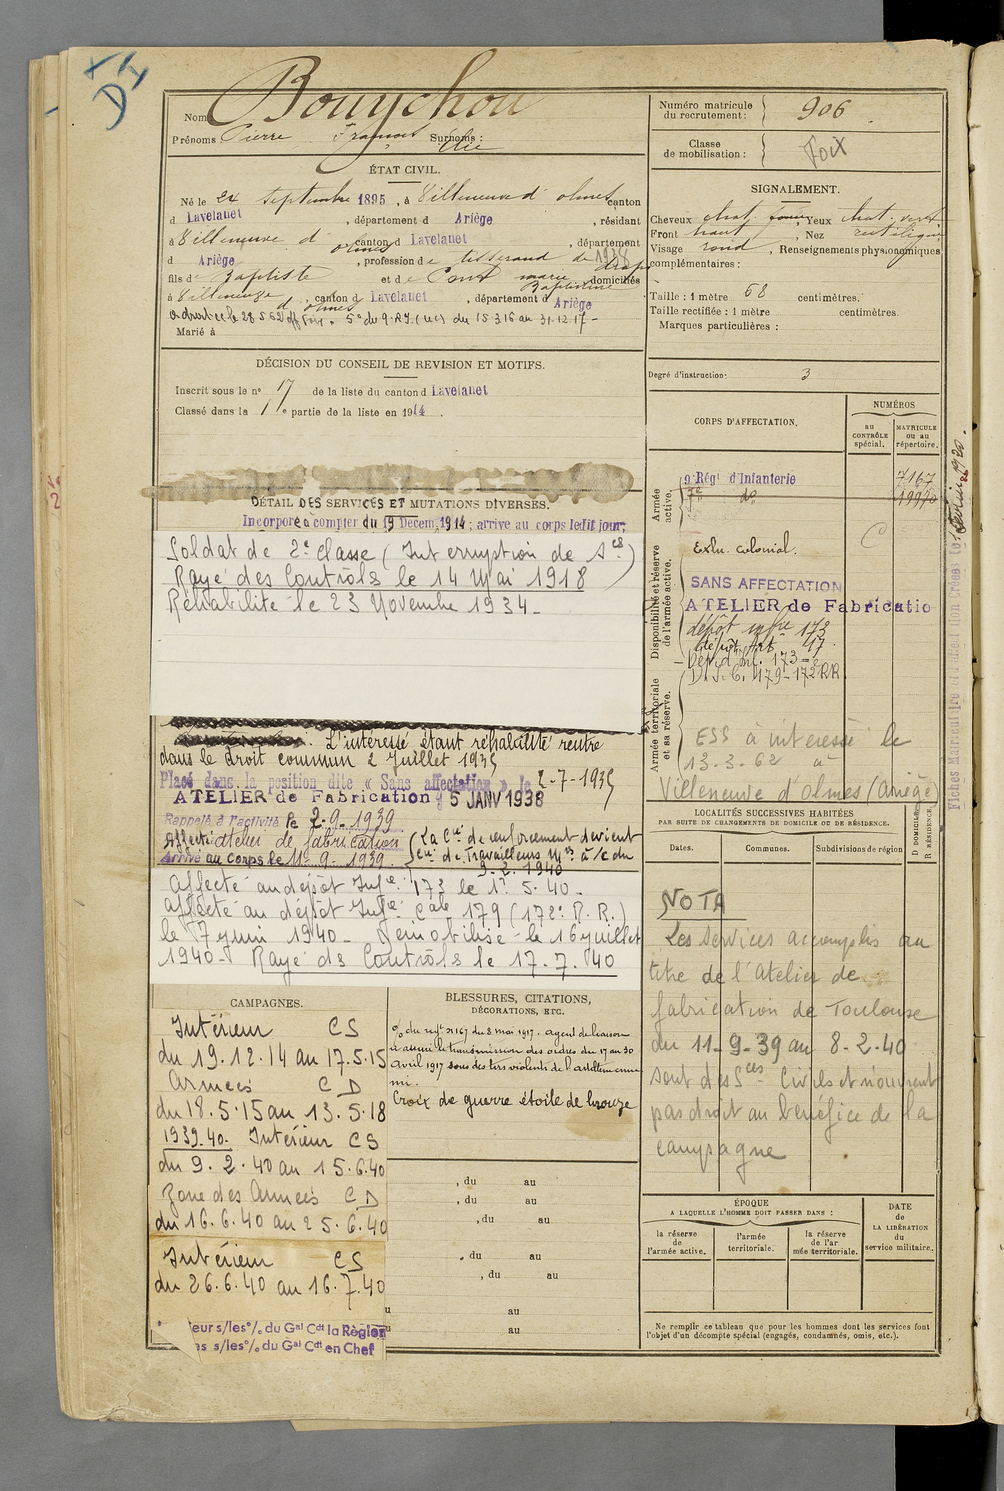 DI
Nom Bouychou
Prénoms : Pierre François Surnoms : Elie
ÉTAT CIVIL.
Né le 24 septembre 1895, à Villeneuve d'olmes canton
d Lavelanet, département d Ariège, résidant
à Villeneuve d'olmes canton d Lavelanet, département
d Ariège, profession de tisserand de draps
fils de Baptiste et de marie Baptistine domiciliés
à Villeneuve d'olmes, canton d Lavelanet, département d Ariège
5e du 9 R.I. (uc) du 15 3 16 au 31.12.17 -
Marié à
DÉCISION DU CONSEIL DE REVISION ET MOTIFS.
Inscrit sous le no 17 de la liste du canton d Lavelanet
Classé dans la 1e partie de la liste en 1914.
DÉTAIL DES SERVICES ET MUTATIONS DIVERSES.
Incorporé à compter du 19 Décem. 1914; arrive au corps ledit jour;
Soldat de 2e classe (Interruption de Sces)
Rayé des Contrôls le 14 Mai 1918
Réhabilité le 23 Novembre 1934 -
L'intéressé étant réhabilité rentre
dans le droit commun 2 Juillet 1935
Placé dans la position dite « Sans affectation » le 2-7-1935
ATELIER de Fabrication 5 JANV 1938
Rappelé à l'activité le 2-9-1939
Affecté atelier de fabrication (La Cie de renforcement devient
Arrivé au corps le 11-9-1939. Cie de Travailleurs Mres à/c du
9-2-1940
Affecté au dépôt Infie 173 le 1er 5.40 -
affecté au dépôt Infie Cale 179 (172e R.R.)
le 7 juin 1940 - Démobilisé le 16 juillet
1940 - Rayé ds Contrôls le 17.7.40
CAMPAGNES.
Intérieur CS
du 19.12.14 au 17.5.15
Armées CD
du 18.5.15 au 13.5.18
1939-40. Intérieur CS
du 9.2.40 au 15.6.40
Zone des Armées CD
du 16.6.40 au 25.6.40
Intérieur CS
du 26.6.40 au 16.7.40
eur s/les o/. du Gal Cdt la Région
es s/les o/. du Gal Cdt en Chef
BLESSURES, CITATIONS,
DÉCORATIONS, ETC.
o/. du regt no 167 du 8 mai 1917. agent de liaison
a assuré la transmission des ordres du 17 au 30
avril 1917 sous des tirs violents de l'artillerie enne
mi.
Croix de guerre étoile de bronze
, du au
, du au
, du au
, du au
, du au
au
au
Numéro matricule
du recrutement : 906
Classe
de mobilisation : Foix
SIGNALEMENT.
Cheveux chat. Yeux chat. vert
Front haut, Nez rectiligne
Visage rond, Renseignements physionomiques
complémentaires :
Taille : 1 mètre 58 centimètres.
Taille rectifiée : 1 mètre centimètres.
Marques particulières :
Degré d'instruction : 3
CORPS D'AFFECTATION.
NUMÉROS
au
CONTRÔLE
spécial.
MATRICULE
ou au
répertoire.
Armée
active.
9e Régt d'Infanterie 7167
Disponibilité et réserve
de l'armée active.
Exlu. colonial.
SANS AFFECTATION
ATELIER de Fabricatio
dépôt infie 173
dépôt Art 17
D.I.C. 179 - 172 RR
Armée territoriale
et sa réserve.
ESS à intéressé le
13-3-62 à
Villeneuve d'olmes (Ariège)
LOCALITÉS SUCCESSIVES HABITÉES
PAR SUITE DE CHANGEMENTS DE DOMICILE OU DE RÉSIDENCE.
Dates.
Communes.
Subdivisions de région
D DOMICILE
R RÉSIDENCE.
NOTA
Les Services accomplis au
titre de l'atelier de
fabrication de Toulouse
du 11-9-39 au 8-2-40
sont des Sces Civils et n'ouvrent
pas droit au bénéfice de la
campagne
ÉPOQUE
A LAQUELLE L'HOMME DOIT PASSER DANS :
la réserve
de
l'armée active.
l'armée
territoriale.
la réserve
de l'ar
mée territoriale.
DATE
de
LA LIBÉRATION
du
service militaire.
Ne remplir ce tableau que pour les hommes dont les services font
l'objet d'un décompte spécial (engagés, condamnés, omis, etc.).